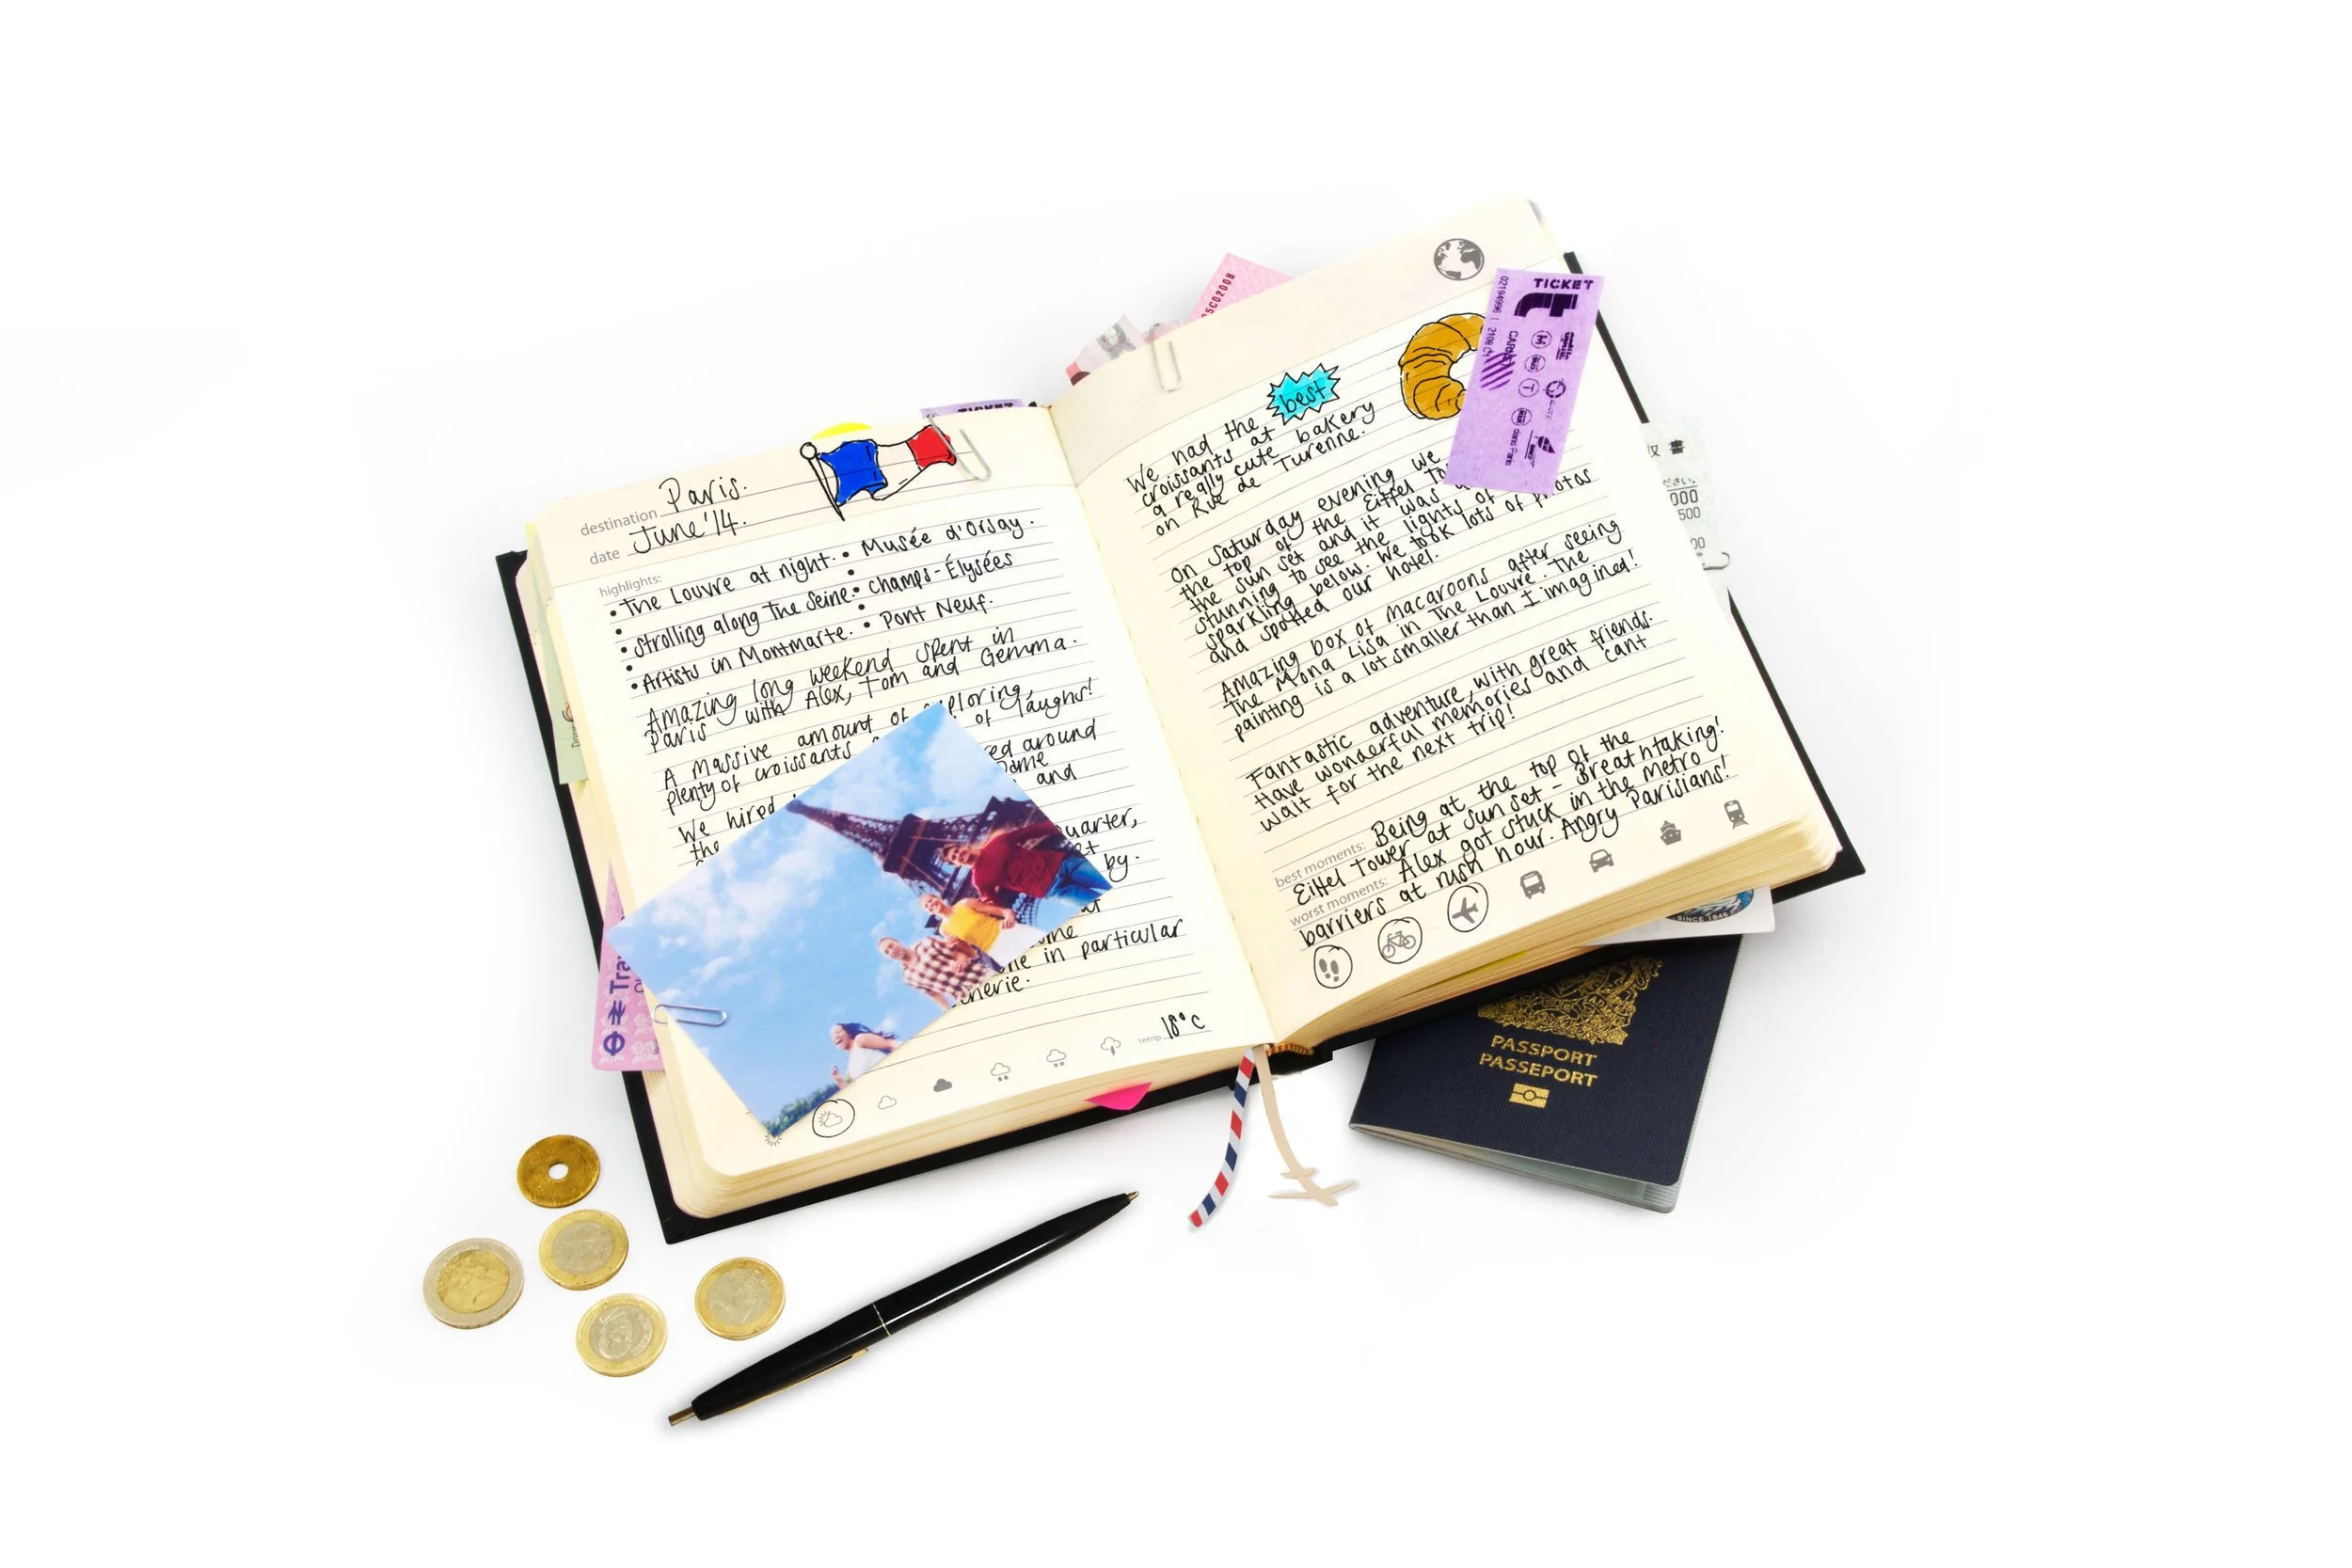 Paris.
destination
June '14.
date
highlights:
• The Louvre at night. • Musée d'Orsay.
• strolling along the Seine. • Champs-Élysées
• Artists in Montmarte. • Pont Neuf.
Amazing long weekend spent in
Paris with Alex, Tom and Gemma.
A Massive amount of exploring,
plenty of croissants of laughs!
We hired around
the and
by.
in particular
temp 18°c
We had the best
croissants at
a really cute bakery
on Rue de Turenne.
On Saturday evening we
the top of the Eiffel
the sun set and it was
stunning to see the lights of
sparkling below. We took lots of photos
and spotted our hotel.
Amazing box of macaroons after seeing
The Mona Lisa in The Louvre. The
painting is a lot smaller than I imagined!
Fantastic adventure, with great friends.
Have wonderful memories and cant
wait for the next trip!
best moments: Being at the top of the
Eiffel Tower at sunset - Breathtaking!
worst moments: Alex got stuck in the metro
barriers at rush hour. Angry Parisians!
TICKET
02194996
TICKET
5C02008
000
500
00
SINCE 1846
PASSPORT
PASSEPORT